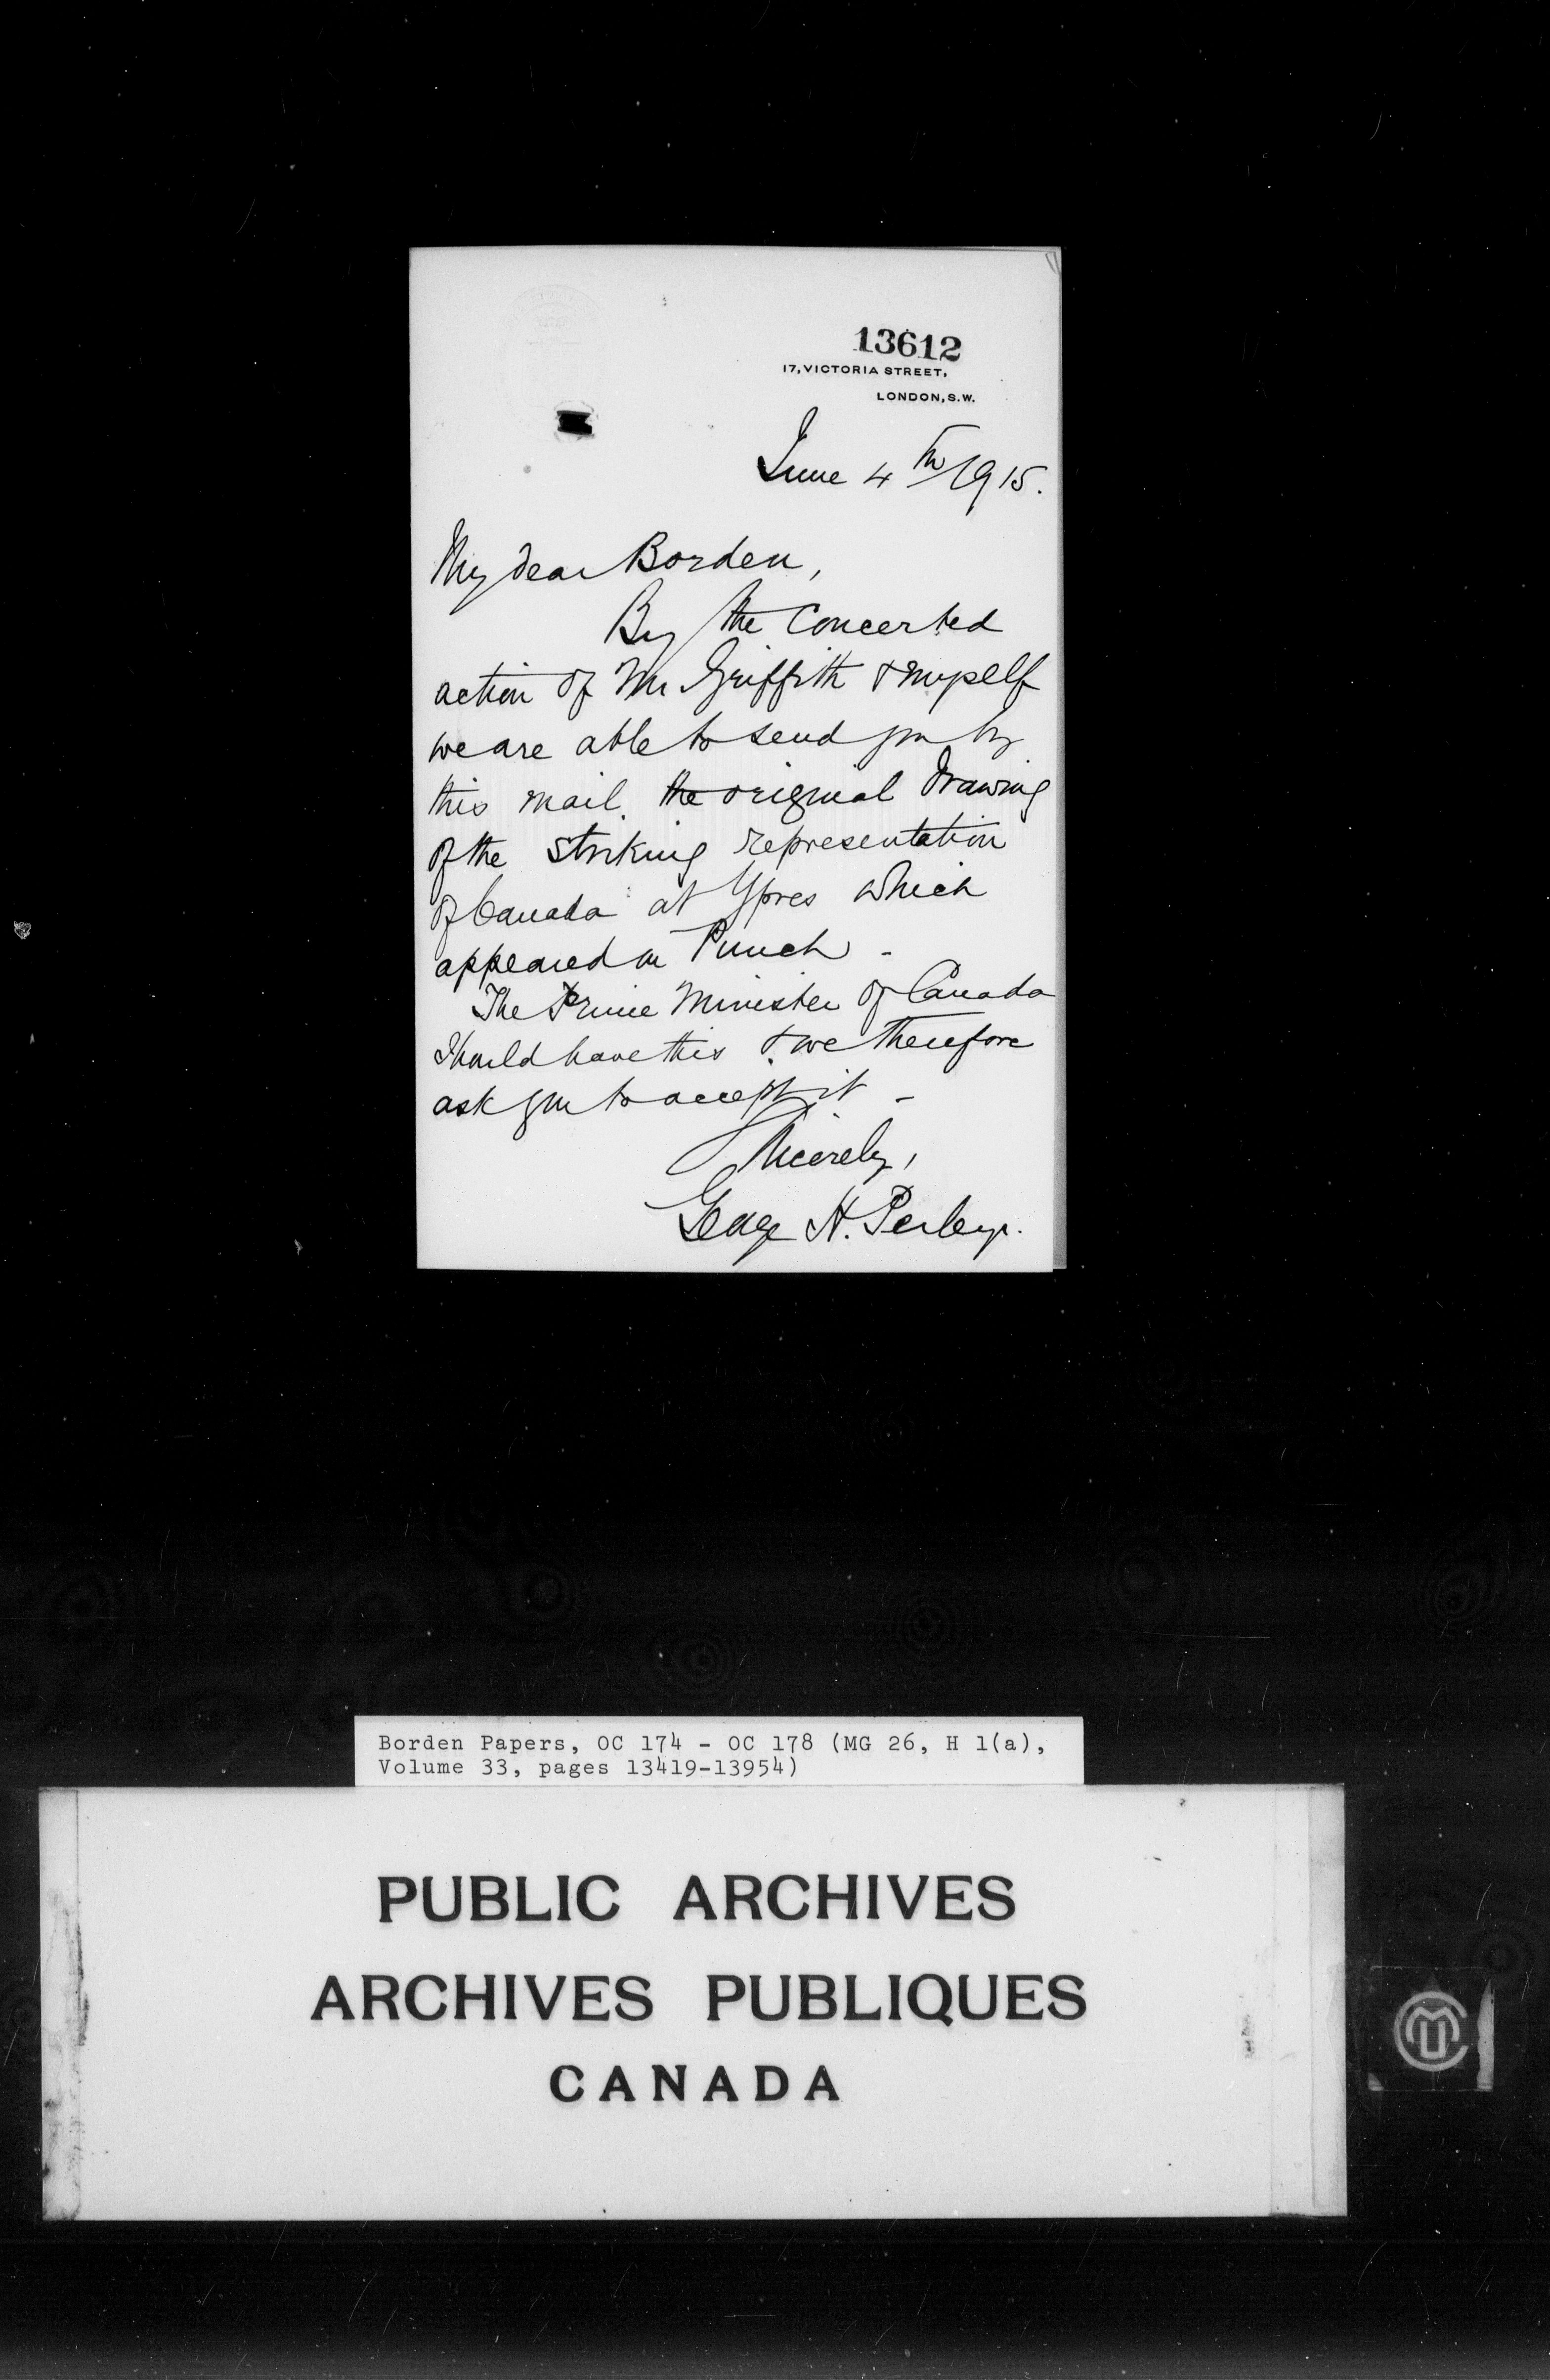 13612
17, VICTORIA STREET,
LONDON, S.W.
June 4th/1915.
My dear Borden,
By the concerted
action of Mr Griffith & myself
we are able to send you by
this mail the original drawing
of the striking representation
of Canada at Ypres which
appeared in Punch -
The Prime Minister of Canada
should have this & we therefore
ask you to accept it -
Sincerely,
George H. Perley.
Borden Papers, OC 174 - OC 178 (MG 26, H 1(a),
Volume 33, pages 13419-13954)
PUBLIC ARCHIVES
ARCHIVES PUBLIQUES
CANADA